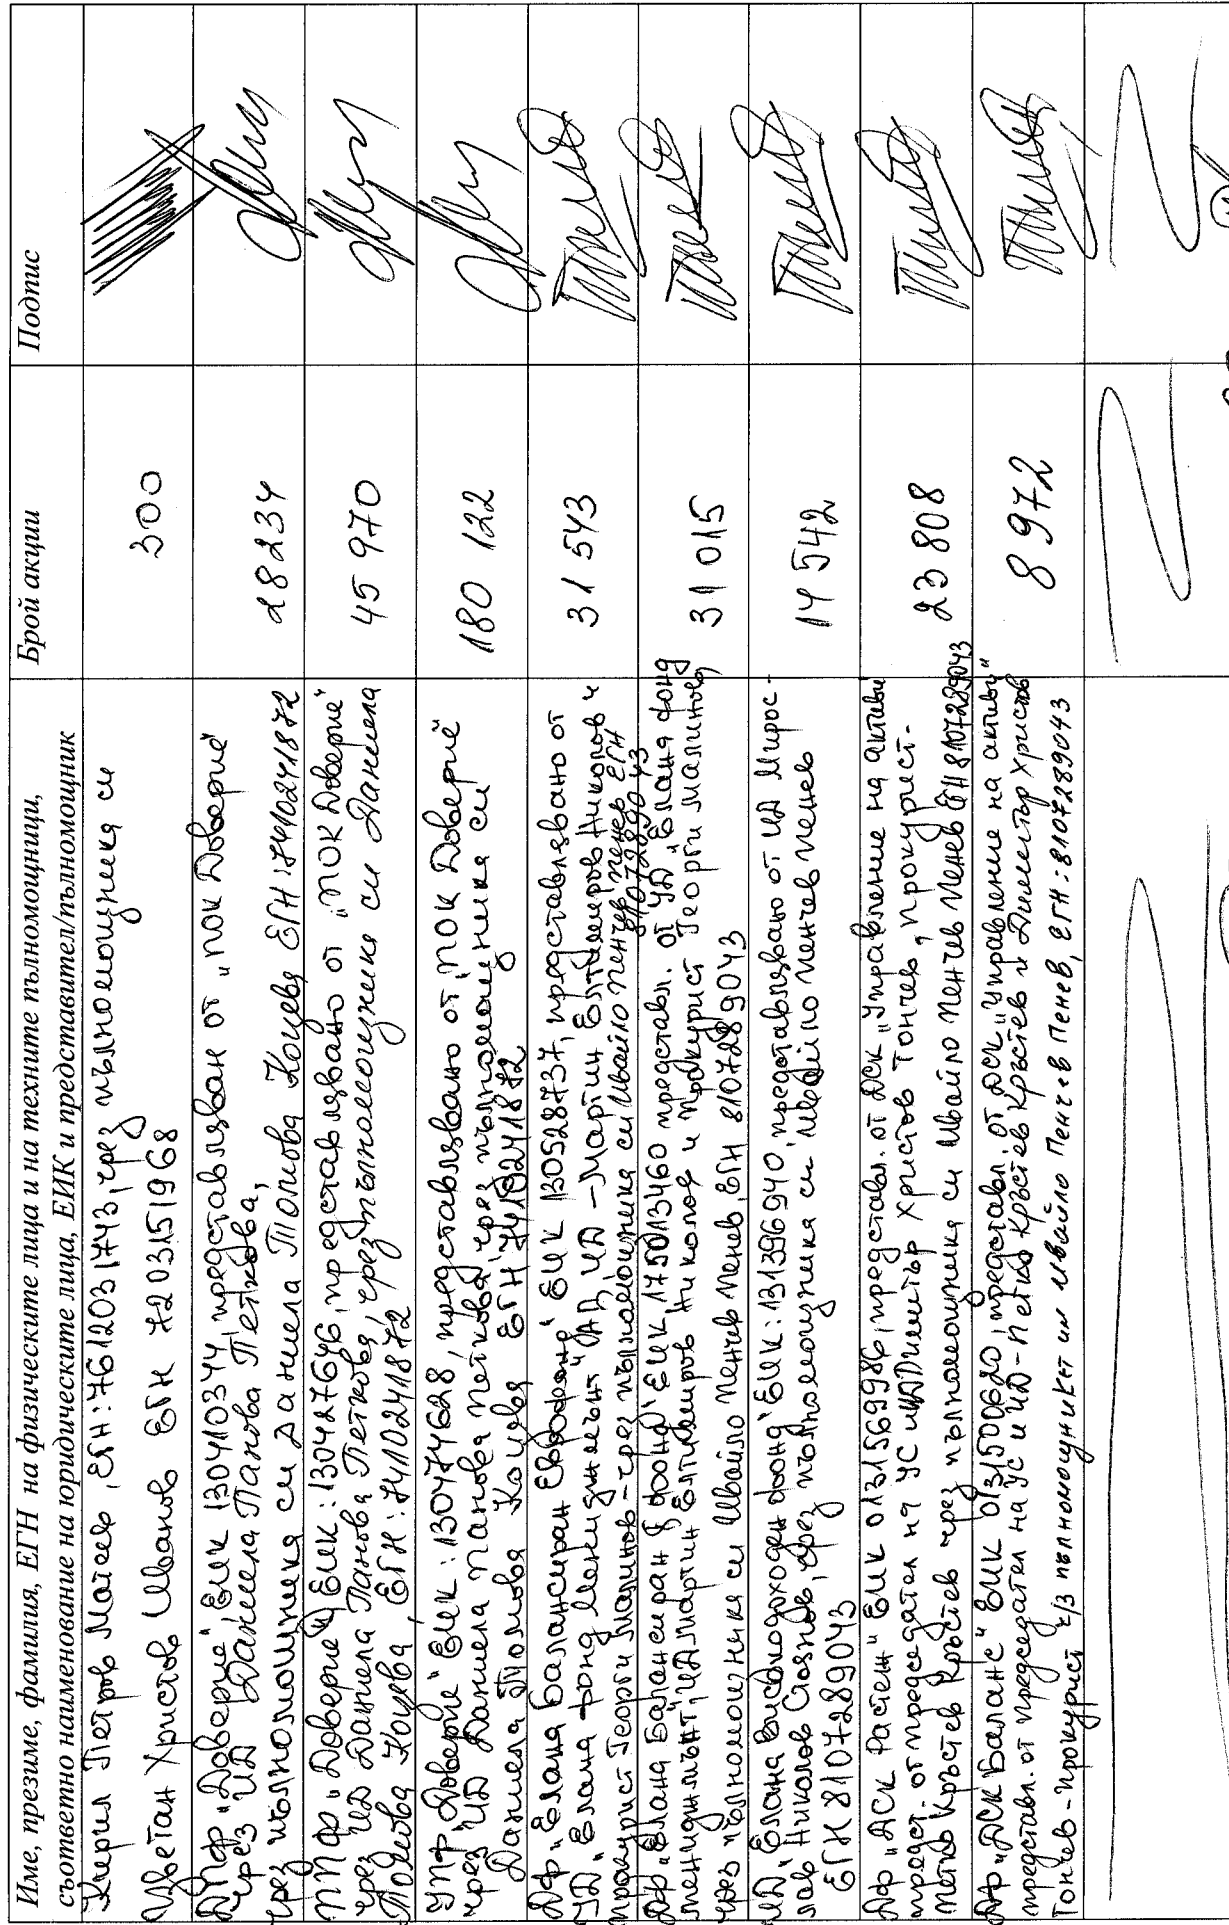 Име, презиме, фамилия, ЕГН на физическите лица и на техните пълномощници,
съответно наименование на юридическите лица, ЕИК и представител/пълномощник
Брой акции
Подпис
Кирил Петров Матев, ЕГН: 7612031743, чрез пълномощника си
Цветан Христов Иванов ЕГН 7203151968
300
ДПФ "Доверие" ЕИК 130410344, представляван от "ПОК Доверие"
чрез ИД Даниела Панова Петкова,
чрез пълномощника си Даниела Толкова Коцева ЕГН: 7410241872
28234
ППФ "Доверие" ЕИК: 130427646, представлявано от "ПОК Доверие"
чрез ИД Даниела Панова Петкова, чрез пълномощника си Даниела
Коцева, ЕГН: 7410241872
45 970
УПФ "Доверие" ЕИК: 130474628, представлявано от "ПОК Доверие"
чрез ИД Даниела Панова Петкова, чрез пълномощника си
Даниела Коцева ЕГН 7410241872
180 122
ДФ "Елана Балансиран Еврофонд" ЕИК 130528737, представлявано от
УД "Елана Фонд Мениджмънт" АД, ИД - Мартин Николов и
прокурист Георги Малинов - чрез пълномощника си Ивайло Пенчев Пенев ЕГН
8107289043
31 543
ДФ "Елана Балансиран $ фонд" ЕИК 175013460 представл. от УД "Елана фонд
мениджмънт", ИД Мартин Николов и прокурист Георги Малинов
чрез пълномощника си Ивайло Пенчев Пенев, ЕГН 8107289043
31 015
"Елана Високодоходен фонд" ЕИК: 131396940, представлявано от ИД Мирос-
лав Николов Стоянов, чрез пълномощника си Ивайло Пенчев Пенев
ЕГН 8107289043
14 542
ДФ "ДСК Растеж" ЕИК 0131569986, представл. от ДСК "Управление на активи"
предст. от председател на УС и ИД Димитър Христов Тончев, прокурист -
Петко Кръстев Кръстев чрез пълномощника си Ивайло Пенчев Пенев ЕГН 8107289043
23 808
ДФ "ДСК Баланс" ЕИК 0131500620, представл. от ДСК "Управление на активи"
представл. от председател на УС и ИД - Петко Кръстев Кръстев и Димитър Христов
Тончев - прокурист ч/з пълномощникът им Ивайло Пенчев Пенев, ЕГН: 8107289043
8 972